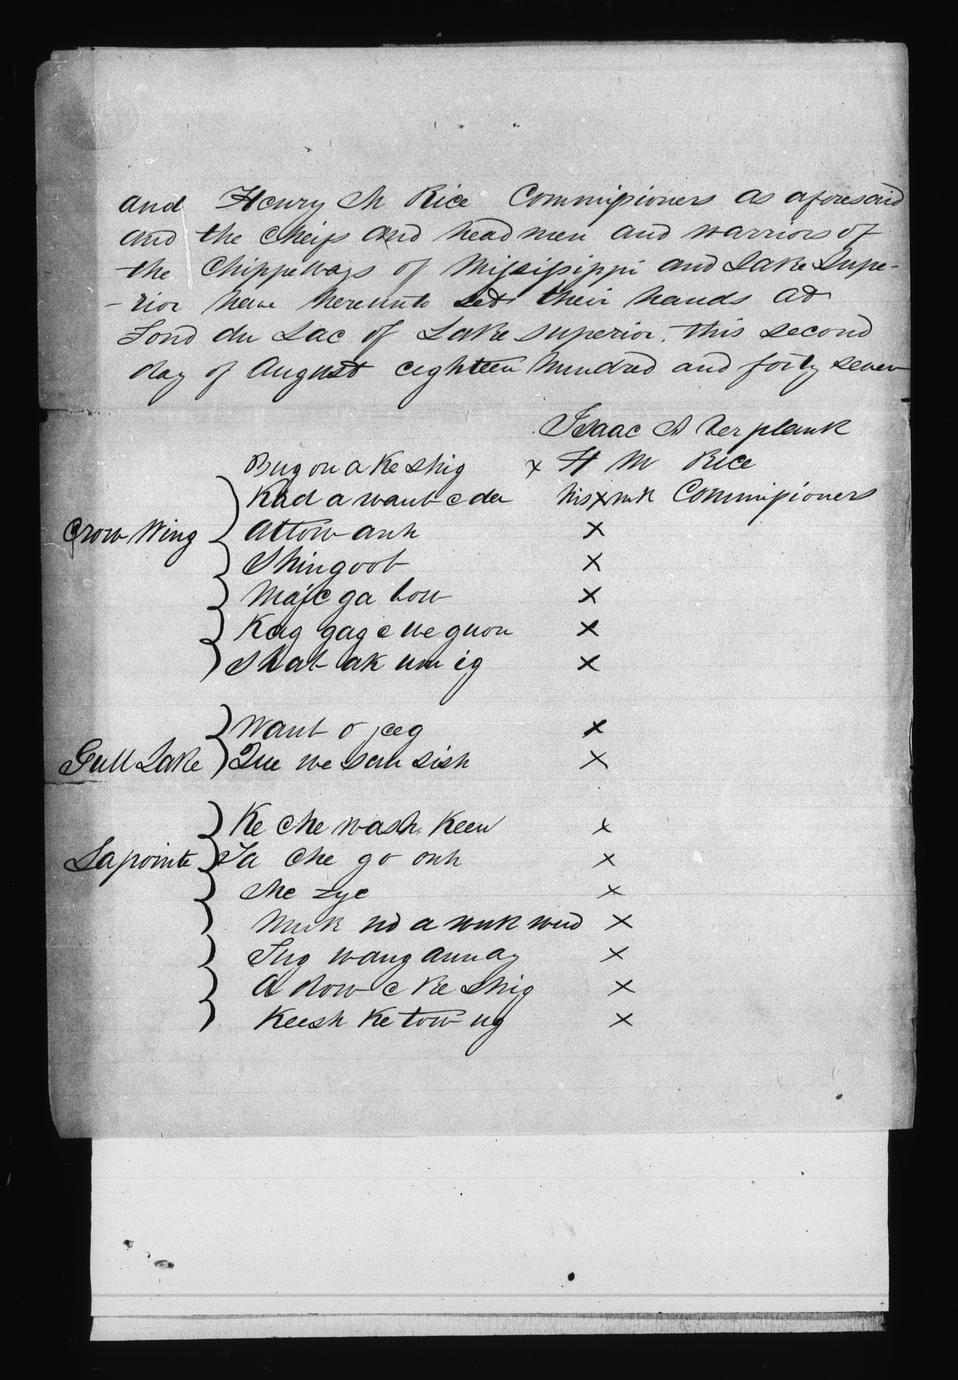 and Henry M Rice Commissioners as aforesaid
and the Cheifs and headmen and warriors of
the Chippeways of Missisippi and Lake Supe-
-rior have hereunto set their hands at
Fond du Lac of Lake superior, this second
day of August eighteen hundred and forty seven
Isaac A Verplank
Bug on a Ke shig x H M Rice
Kad a want e da his x mk Commissioners
Crow Wing Attow anh x
Shingoob x
Maje ga bow x
Kag gag e we guon x
Shab ak um ig x
Waub o jeeg x
Gull Lake Que we san sish x
Ke che wash Keen x
Lapointe Ta che go onh x
x
Muk no a wuk wud x
Tug waug aun ay x
A dow e Ke shig x
Keesh Ke tow ug x